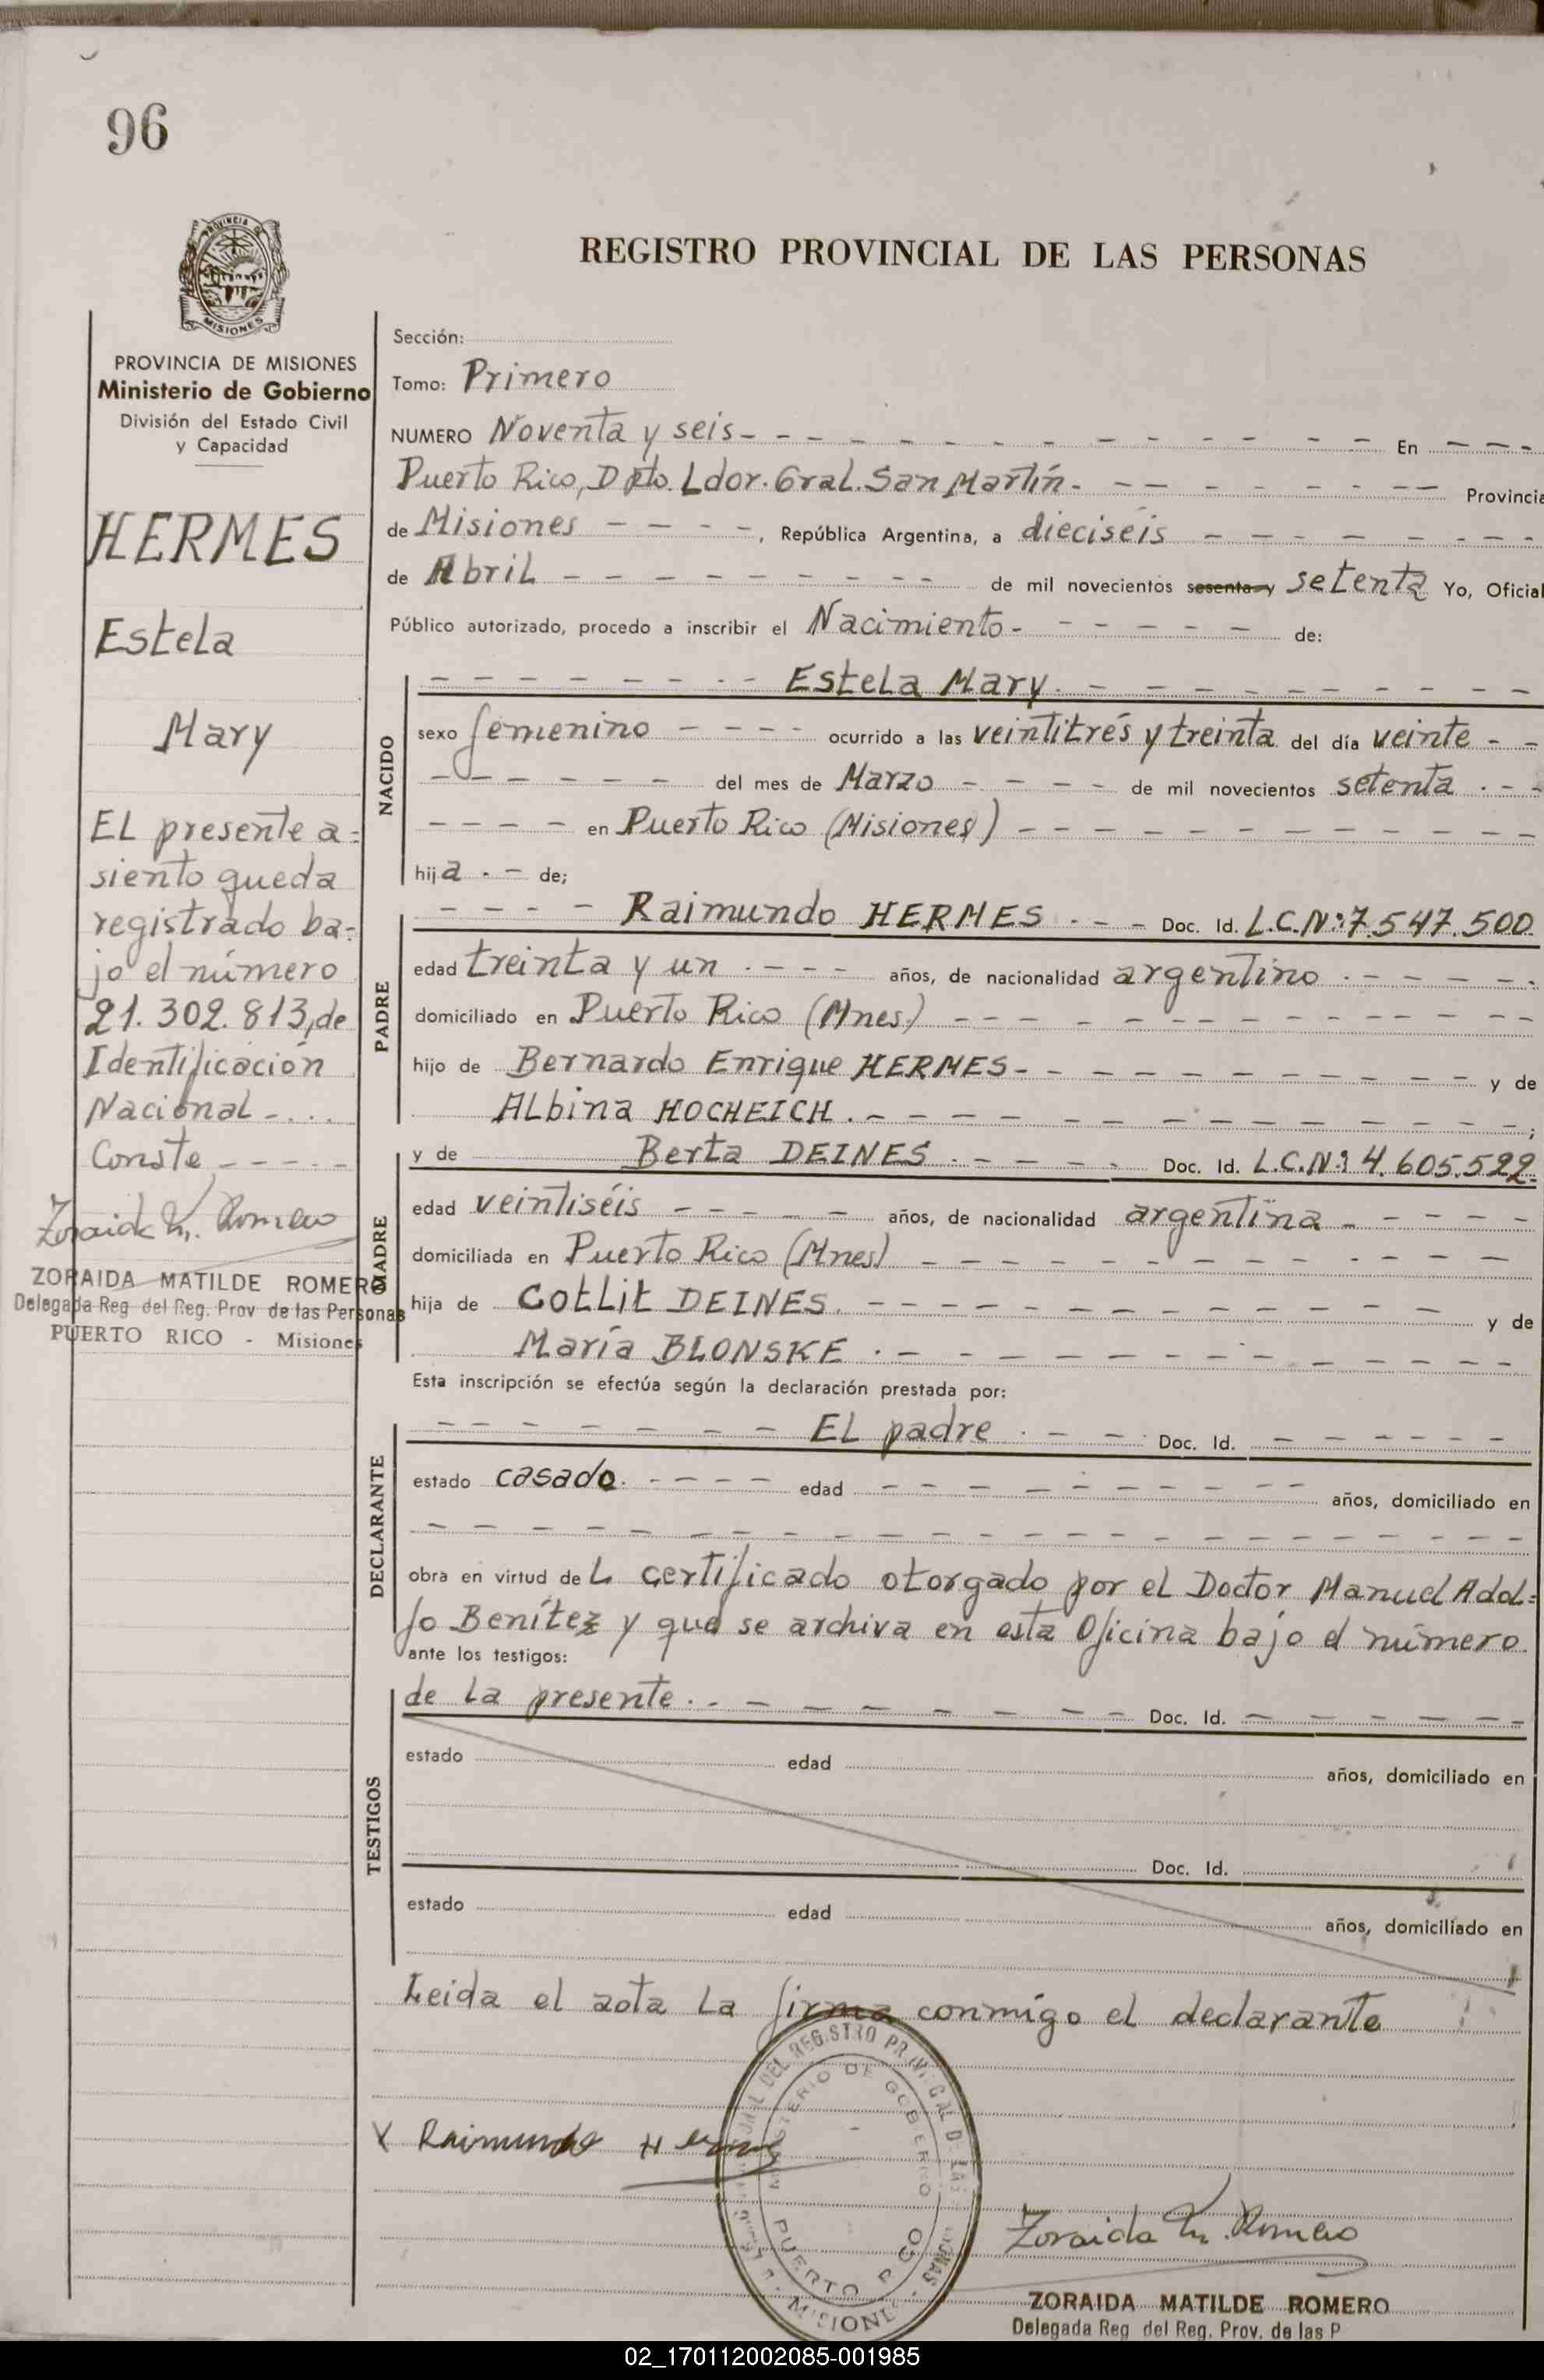 96
PROVINCIA
MISIONES
REGISTRO PROVINCIAL DE LAS PERSONAS
PROVINCIA DE MISIONES
Ministerio de Gobierno
División del Estado Civil
y Capacidad
HERMES
Estela
Mary
EL presente a=
siento queda
registrado ba=
jo el número
21.302.813, de
Identificación
Nacional - . . .
Conste - - - - -
Zoraida M. Romero
ZORAIDA MATILDE ROMERO
Delegada Reg del Reg. Prov de las Personas
PUERTO RICO - Misiones
Sección:
Tomo: Primero
NUMERO Noventa y seis - - - En - - -
Puerto Rico, Dpto. Ldor. Gral. San Martín. - - - Provincia
de Misiones - - - -, República Argentina, a dieciséis - - -
de Abril - - - de mil novecientos sesenta y setenta Yo, Oficial
Público autorizado, procedo a inscribir el Nacimiento - - - de:
NACIDO
- - - Estela Mary. - - -
sexo femenino - - - - ocurrido a las veintitrés y treinta del día veinte - -
- - - del mes de Marzo - - - de mil novecientos setenta . - -
- - - - en Puerto Rico (Misiones) - - -
hija . - de;
PADRE
- - - - Raimundo HERMES . - - Doc. Id. L.C.Nº:7.547.500
edad treinta y un . - - - años, de nacionalidad argentino . - - -
domiciliado en Puerto Rico (Mnes.) - - -
hijo de Bernardo Enrique HERMES - - - y de
ALbina HOCHEICH . - - - ;
MADRE
y de Berta DEINES . - - - Doc. Id. L.C.Nº: 4.605.522.
edad veintiséis - - - años, de nacionalidad argentina - - -
domiciliada en Puerto Rico (Mnes) - - -
hija de Gotlit DEINES. - - - y de
María BLONSKE . - - -
Esta inscripción se efectúa según la declaración prestada por:
DECLARANTE
- - - EL padre . - - Doc. Id. - - -
estado casado. - - - - edad - - - años, domiciliado en
- - -
obra en virtud de L certificado otorgado por el Doctor Manuel Adol=
fo Benítez y que se archiva en esta Oficina bajo el número
ante los testigos:
TESTIGOS
de La presente . - - - Doc. Id. - - -
estado edad años, domiciliado en
Doc. Id.
estado edad años, domiciliado en
Leida el acta La firma conmigo el declarante
X Raimundo Hermes
DEL REGISTRO PROVINCIAL DE LAS
MINISTERIO DE GOBIERNO
PUERTO RICO
MISIONES
Zoraida M. Romero
ZORAIDA MATILDE ROMERO
Delegada Reg del Reg. Prov. de las P
02_170112002085-001985